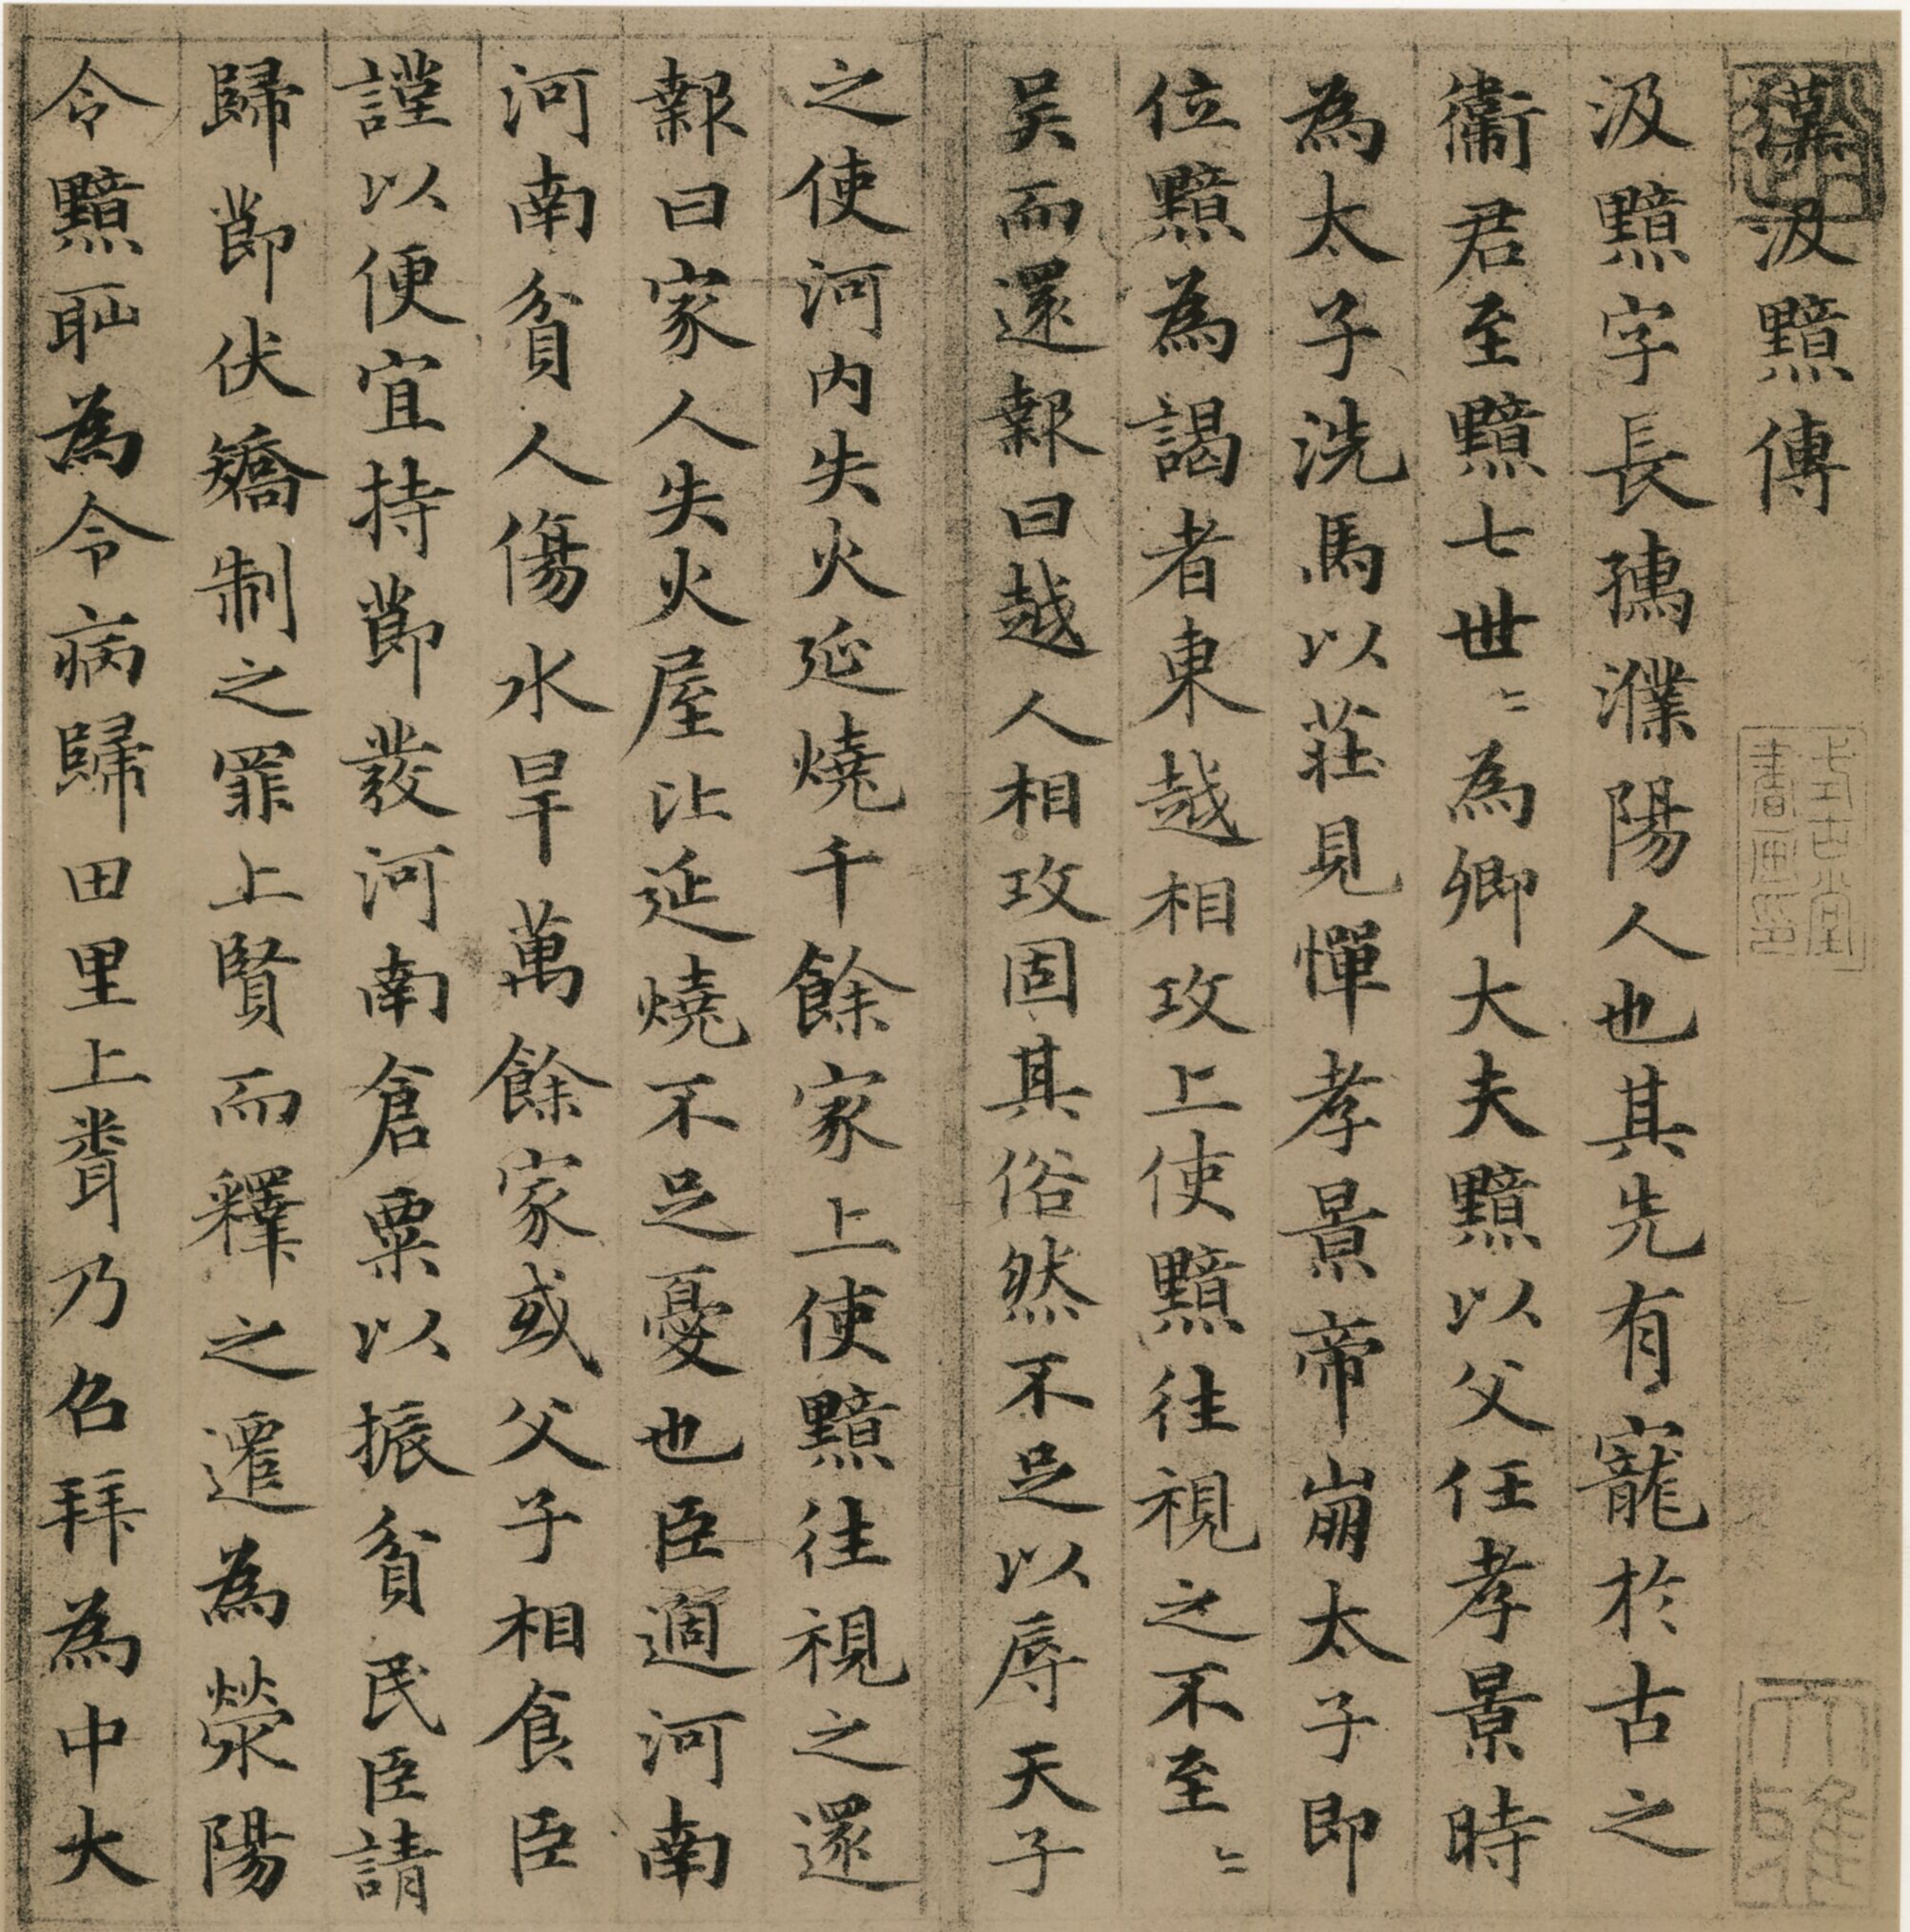 漢汲黯傳
汲黯字長孺濮陽人也其先有寵於古之
衞君至黯七世〻為卿大夫黯以父任孝景時
為太子洗馬以莊見憚孝景帝崩太子即
位黯為謁者東越相攻上使黯往視之不至〻
吴而還報曰越人相攻固其俗然不足以辱天子
之使河内失火延燒千餘家上使黯往視之還
報曰家人失火屋比延燒不足憂也臣過河南
河南貧人傷水旱萬餘家或父子相食臣
謹以便宜持節發河南倉粟以振貧民臣請
歸節伏矯制之罪上賢而釋之遷為滎陽
令黯恥為令病歸田里上聞乃召拜為中大
式古堂書画印
大雅